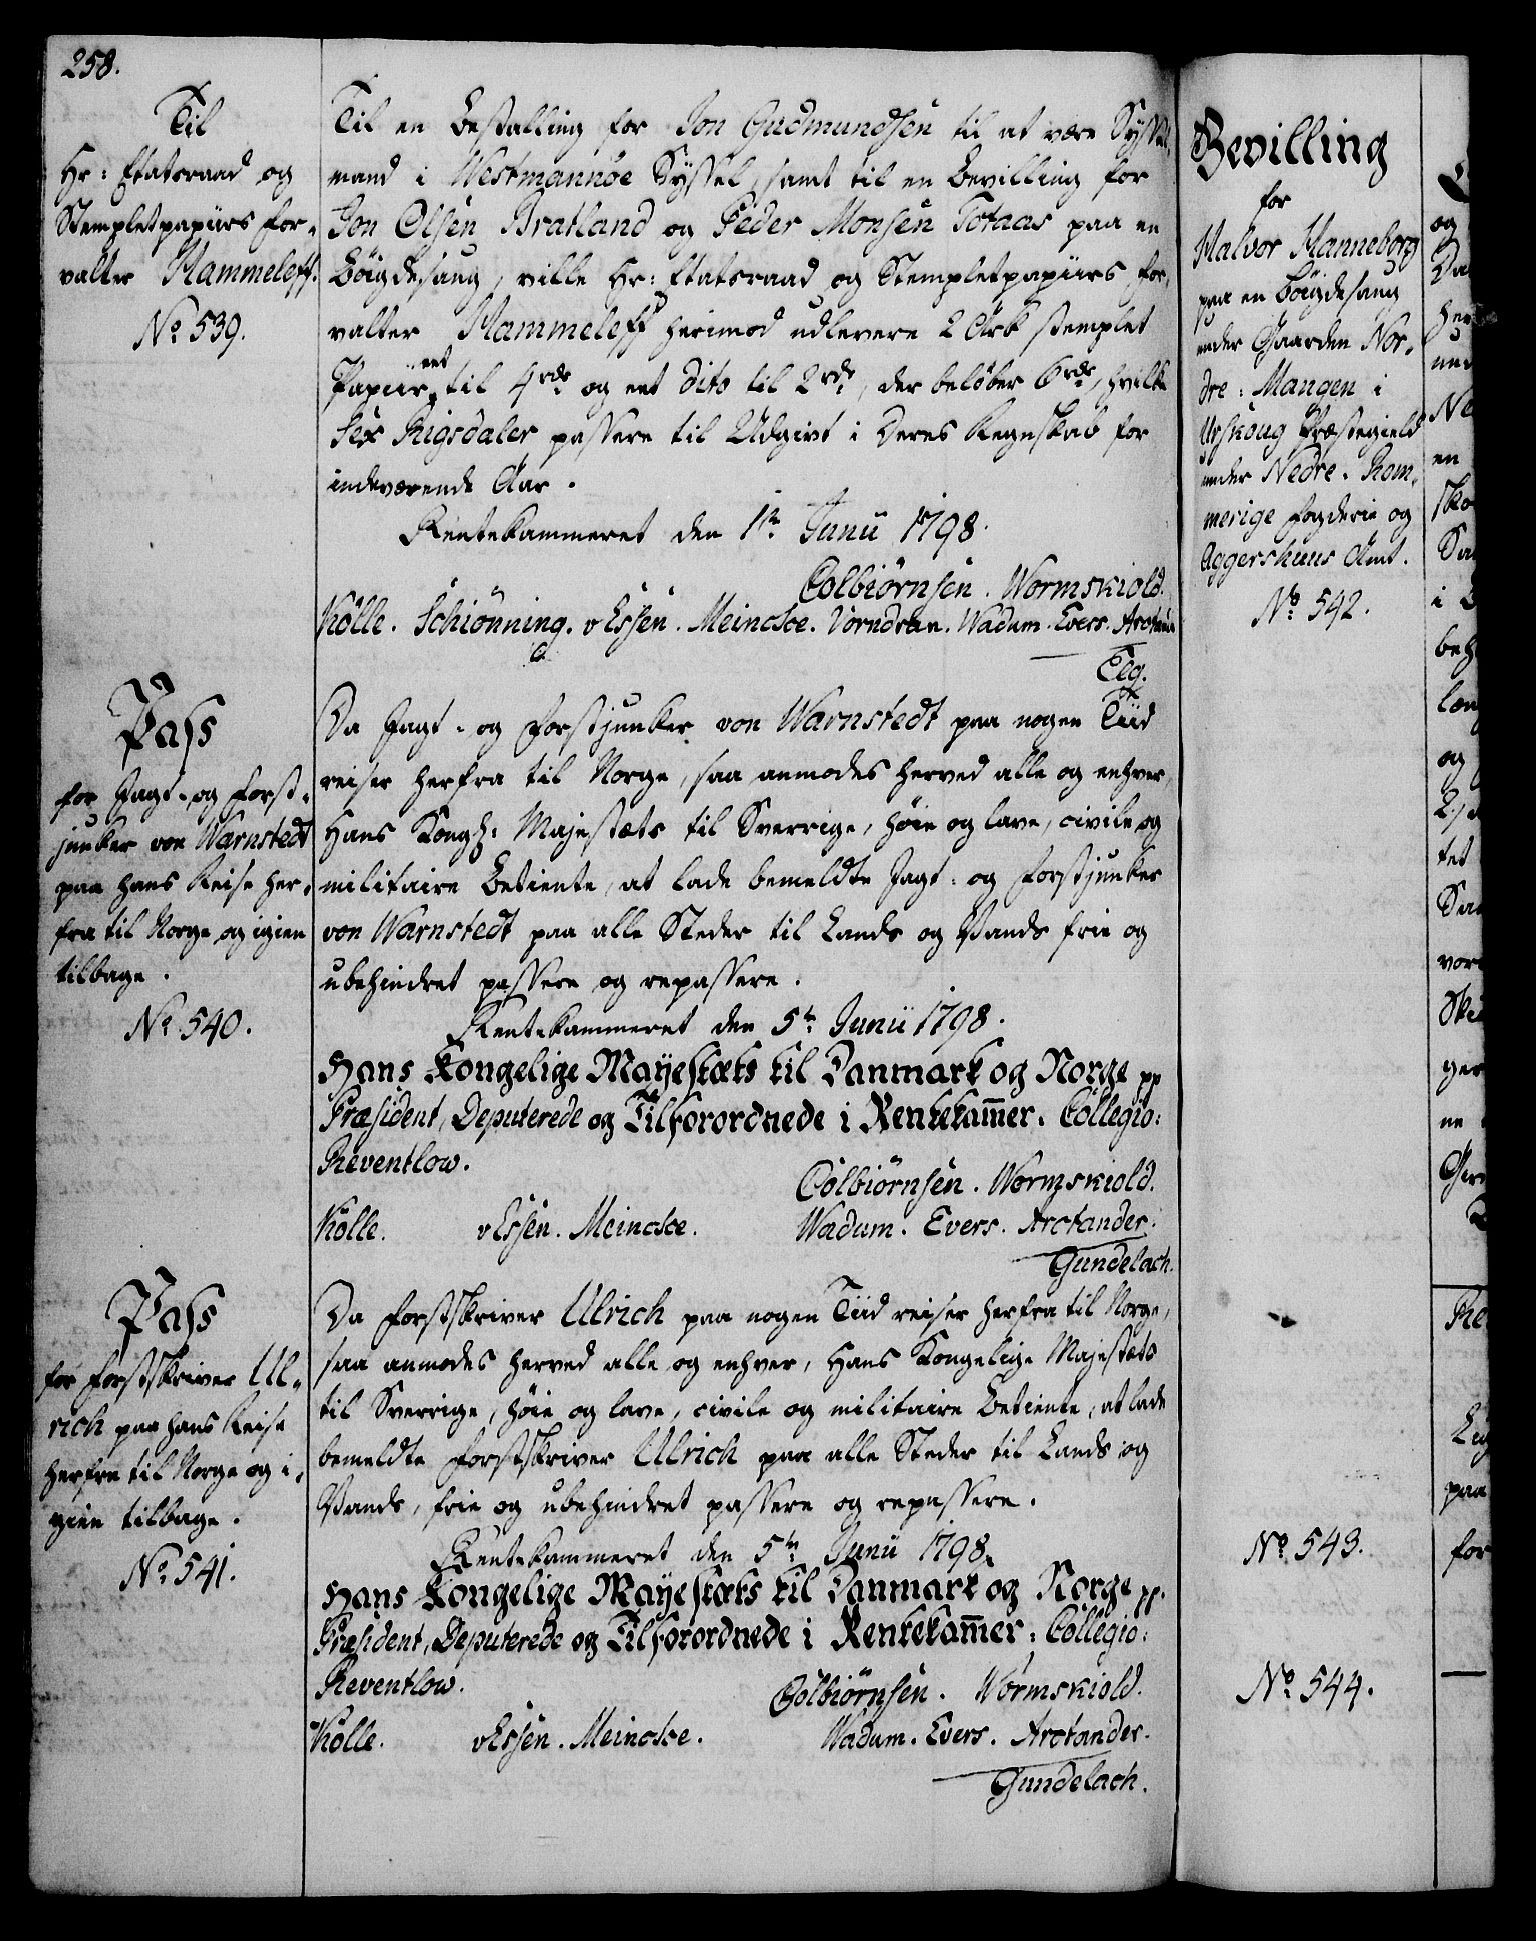 258.
Til
Hr: Etatsraad og
Stempletpapiirs For-
valter Hammeleff.
No 539.
Til en Bestalling for Jon Gudmundsen til at være Syssel-
mand i Westmannöe Syssel, samt til en Bevilling for
Jon Olsen Bratland og Peder Monsen Totaas paa en
Böigdesaug, ville Hr: Etatsraad og Stempletpapiirs For-
valter Hammeleff herimod udlevere 2 Ark stemplet
Papiir, eet til 4 rdr og eet dito til 2 rdr, der beløber 6 rdr, hvilke
Sex Rigsdaler passere til Udgivt i Deres Regnskab for
indeværende Aar.
Rentekammeret den 1te Junii 1798.
Colbiörnsen. Wormskiold.
Kölle. Schiönning. v Essen. Meincke. Vorndran. Wadum. Evers. Arctander
Elg.
Pass
for Jagt- og Forst-
junker von Warnstedt
paa hans Reise her-
fra til Norge og igien
tilbage.
No 540.
Da Jagt- og Forstjunker von Warnstedt paa nogen Tiid
reiser herfra til Norge, saa anmodes herved alle og enhver,
Hans Kongl: Majestæts til Sverrige, høie og lave, civile og
militaire Betiente, at lade bemeldte Jagt- og Forstjunker
von Warnstedt paa alle Steder til Lands og Vands frie og
ubehindret passere og repassere.
Rentekammeret den 5te Junii 1798.
Hans Kongelige Mayestæts til Danmark og Norge pp
Præsident, Deputerede og Tilforordnede i Rentekam̄er-Collegio:
Reventlow.
Colbiörnsen. Wormskiold.
Kölle. v Essen. Meincke. Wadum. Evers. Arctander.
Gundelach.
Pass
for Forstskriver Ul-
rich paa hans Reise
herfra til Norge og i-
gien tilbage.
No 541.
Da Forstskriver Ulrich paa nogen Tiid reiser herfra til Norge,
saa anmodes herved alle og enhver, Hans Kongelige Majestæts
til Sverrige, høie og lave, civile og militaire Betiente, at lade
bemeldte Forstskriver Ulrich paa alle Steder til Lands og
Vands, frie og ubehindret passere og repassere.
Rentekammeret den 5te Junii 1798.
Hans Kongelige Mayestæts til Danmark og Norge pp.
Præsident, Deputerede og Tilforordnede i Rentekam̄er-Collegio:
Reventlow.
Colbiörnsen. Wormskiold.
Kölle. v Essen. Meincke. Wadum. Evers. Arctander.
Gundelach.
Bevilling
for
Halvor Hanneborg
paa en Böigdesaug
under Gaarden Nor-
dre-Mangen i
Urskoug Præstegield
under Nedre-Rom-
merige Fogderie og
Aggershuus Amt.
No 542.
No 543.
No 544.